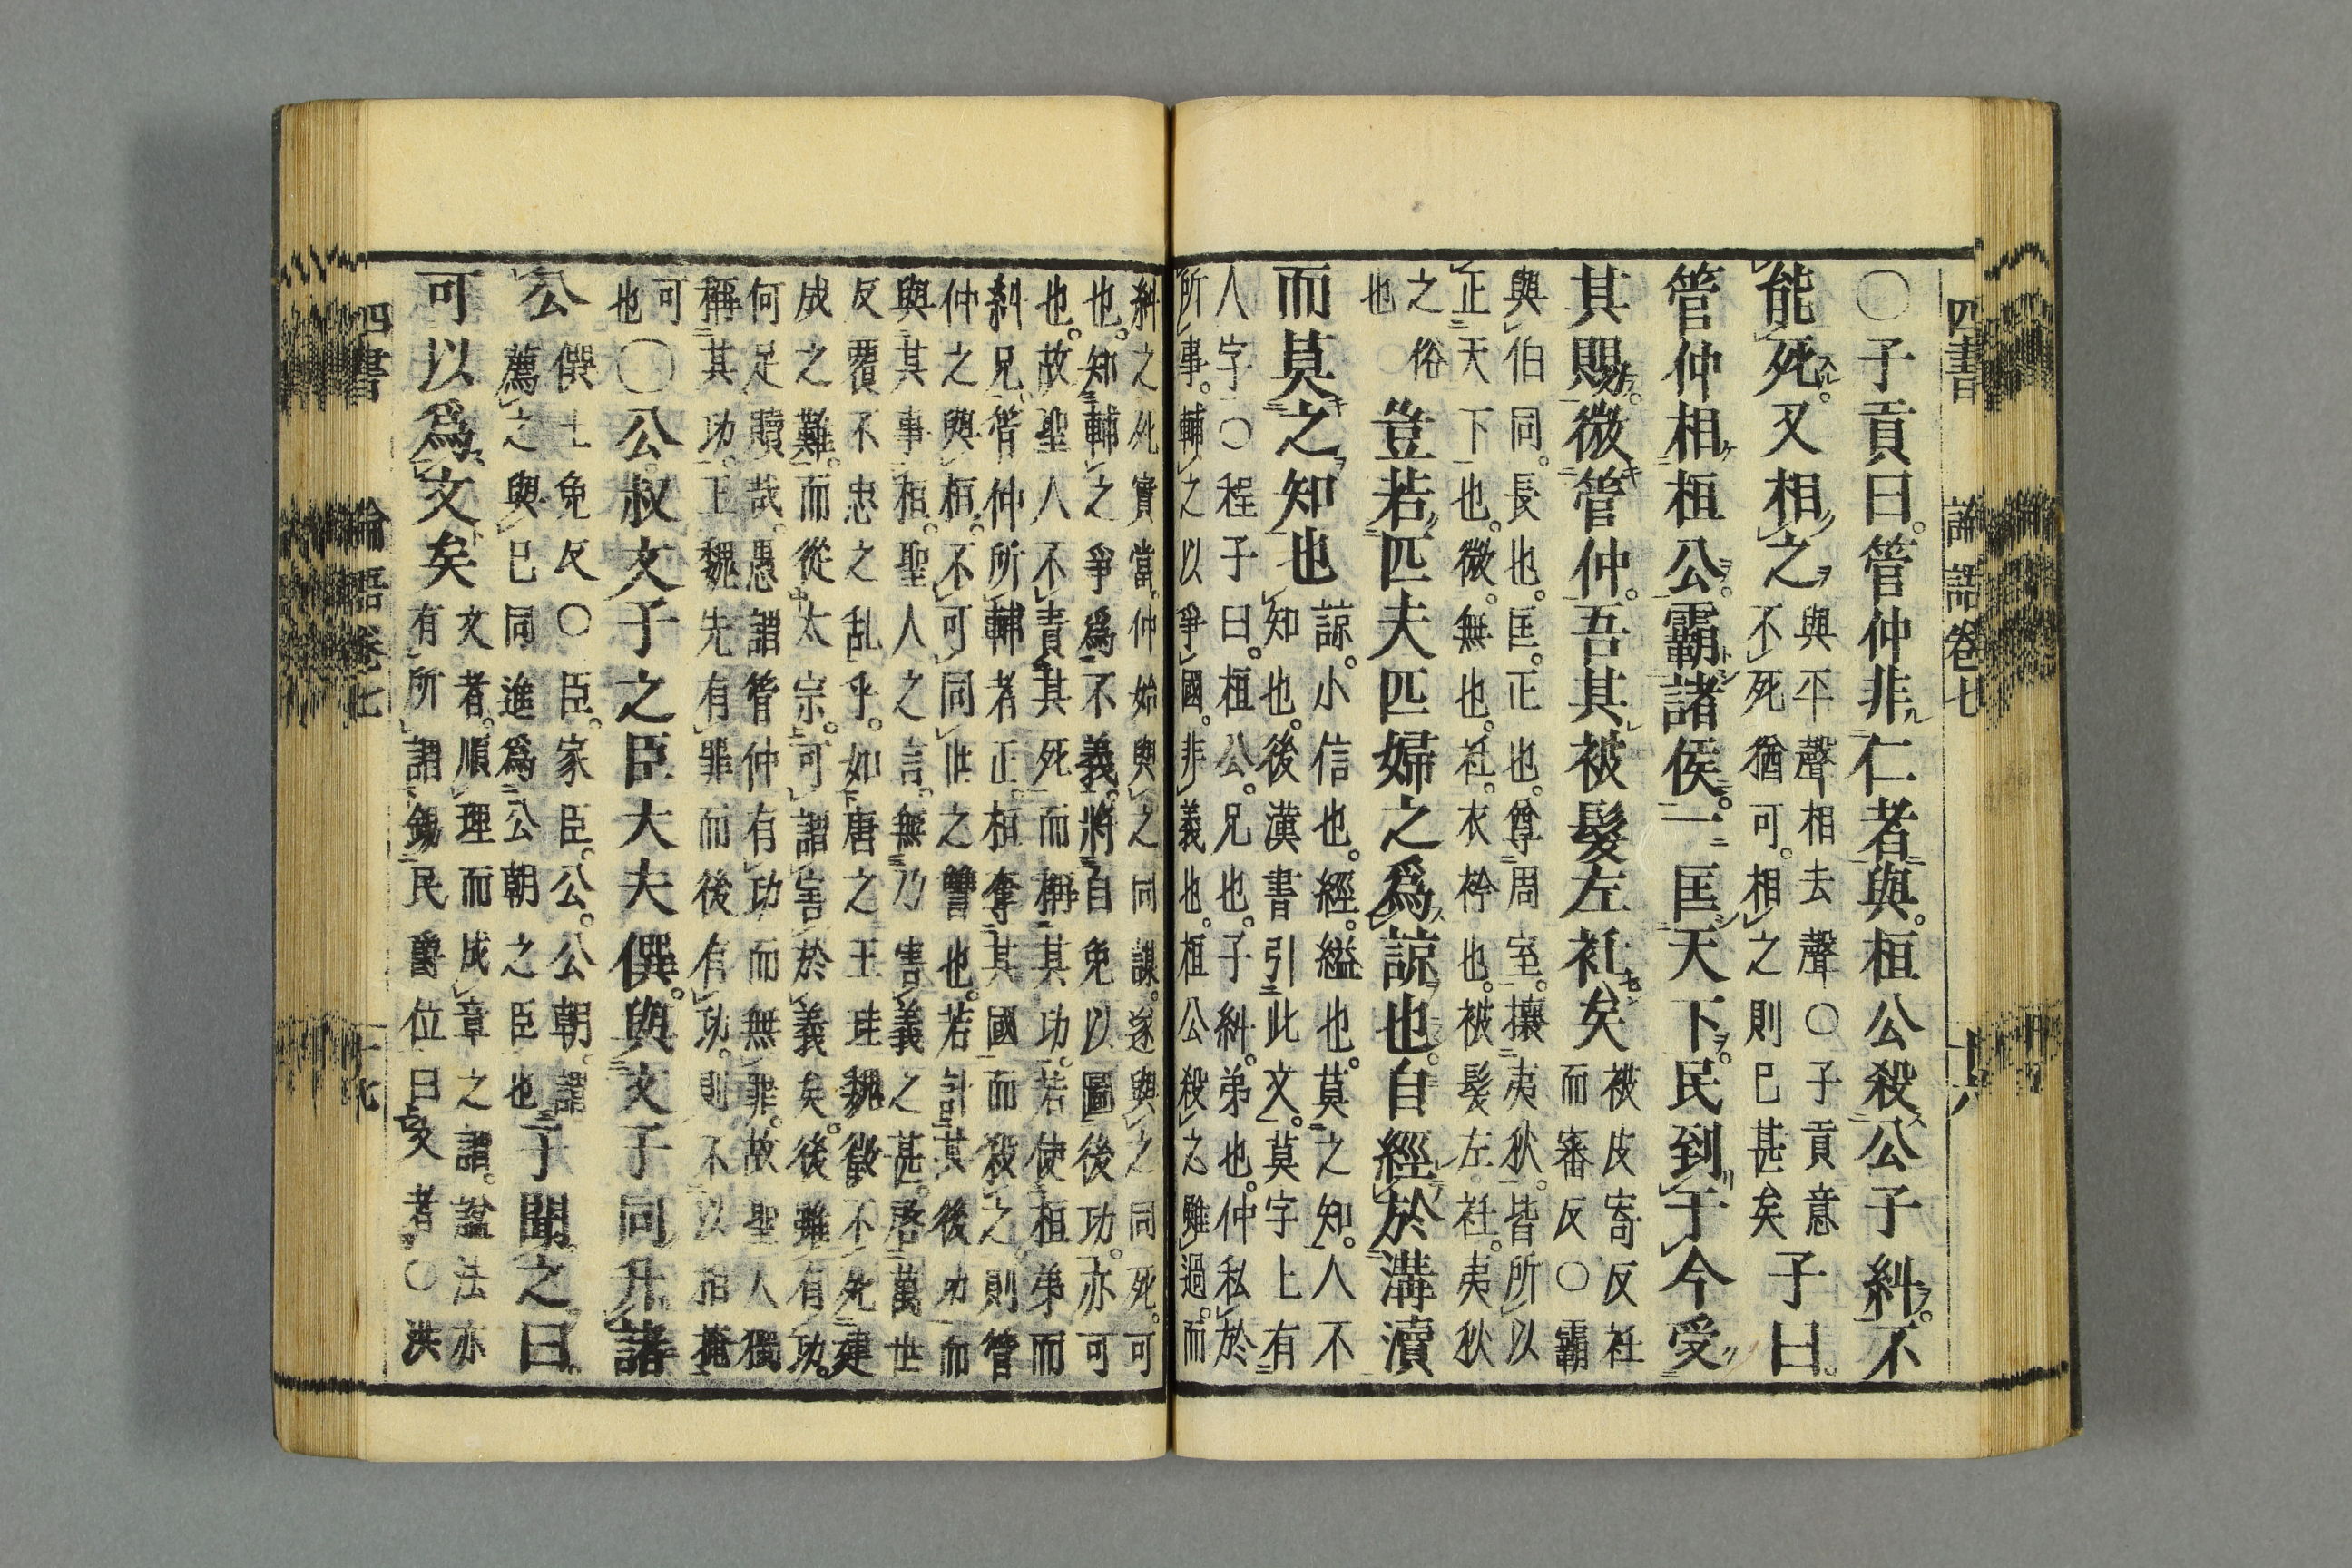 四書 論語卷七 十八
〇子貢曰。管仲非仁者與。桓公殺公子糾。不
能死。又相之
與平聲相去聲〇子貢意
不死猶可。相之則已甚矣
子曰。
管仲相桓公。霸諸侯。一匡天下。民到于今受
其賜。微管仲。吾其被髮左衽矣
被皮寄反衽
而審反〇霸
與伯同。長也。匡。正也。尊周室。攘夷狄。皆所以
正天下也。微。無也。衽。衣衿也。被髮左衽。夷狄
之俗
也
豈若匹夫匹婦之爲諒也。自經於溝瀆
而莫之知也
諒。小信也。經。縊也。莫之知。人不
知也。後漢書引此文。莫字上有
人字〇程子曰。桓公。兄也。子糾。弟也。仲私於
所事。輔之以爭國。非義也。桓公殺之雖過。而
糾之死實當。仲始與之同謀。遂與之同死。可
也。知輔之爭爲不義。將自免以圖後功。亦可
也。故聖人不責其死而稱其功。若使桓弟而
糾兄。管仲所輔者正。桓奪其國而殺之。則管
仲之與桓。不可同世之讐也。若計其後功而
與其事桓。聖人之言。無乃害義之甚。啓萬世
反覆不忠之乱乎。如唐之王珪魏徵不死建
成之難。而從太宗。可謂害於義矣。後雖有功。
何足贖哉。愚謂管仲有功而無罪。故聖人獨
稱其功。王魏先有罪而後有功。則不以相掩
可
也
〇公叔文子之臣大夫僎。與文子同升諸
公
僎士免反〇臣。家臣。公。公朝。謂
薦之與已同進爲公朝之臣也
子聞之曰
可以爲文矣
文者。順理而成章之謂。謚法亦
有所謂錫民爵位曰文者。〇洪
四書 論語卷七 十九